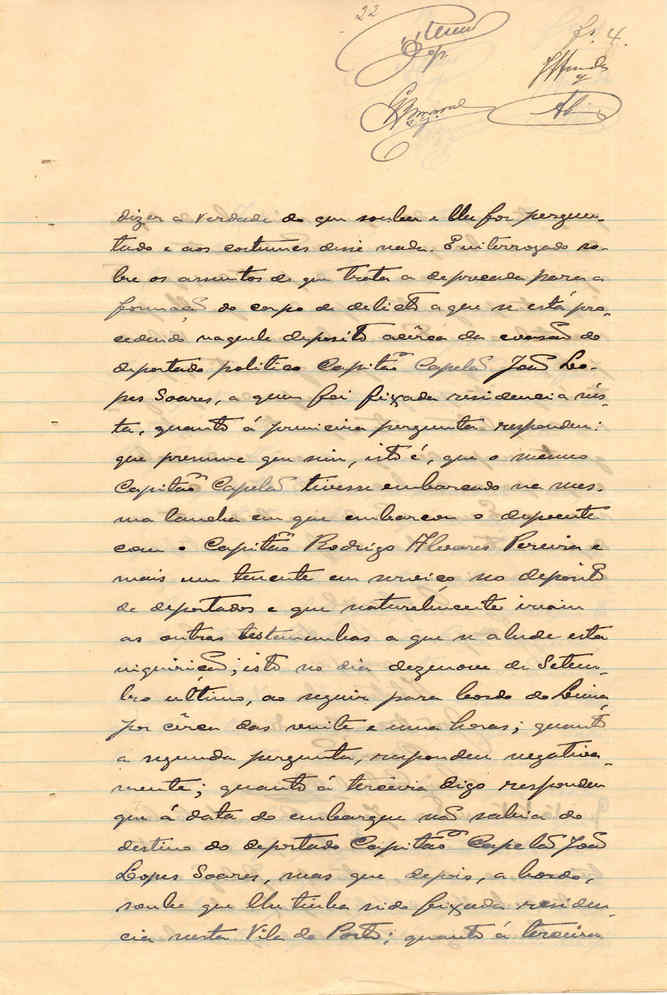 22
fs. 4.
dizer a verdade do que souber e lhe for pergun-
tado e aos costumes disse nada. E interrogado so-
bre os assuntos de que trata a deprecada para a
formação do corpo de delicto a que se está pro-
cedendo naquele deposito acêrca da evasão do
deportado politico Capitão Capelão João Lo-
pes Soares, a quem foi fixada residencia nés-
ta, quanto á primeira pergunta respondeu:
que presume que sim, isto é, que o mesmo
Capitão Capelão tivesse embarcado na mes-
ma lancha em que embarcou o depoente
com o Capitão Rodrigo Alvares Pereira e
mais um tenente em serviço no deposito
de deportados e que naturalmente iriam
as outras testemunhas a que se alude esta
inquirição; isto no dia dezenove de Setem-
bro ultimo, ao seguir para bordo do Lima
por cêrca das vinte e uma horas; quanto
a segunda pergunta, respondeu negativa-
mente; quanto á terceira digo respondeu
que á data do embarque não sabia do
destino do deportado Capitão Capelão João
Lopes Soares, mas que depois, a bordo,
soube que lhe tinha sido fixada residen-
cia nesta Vila do Porto; quanto á terceira